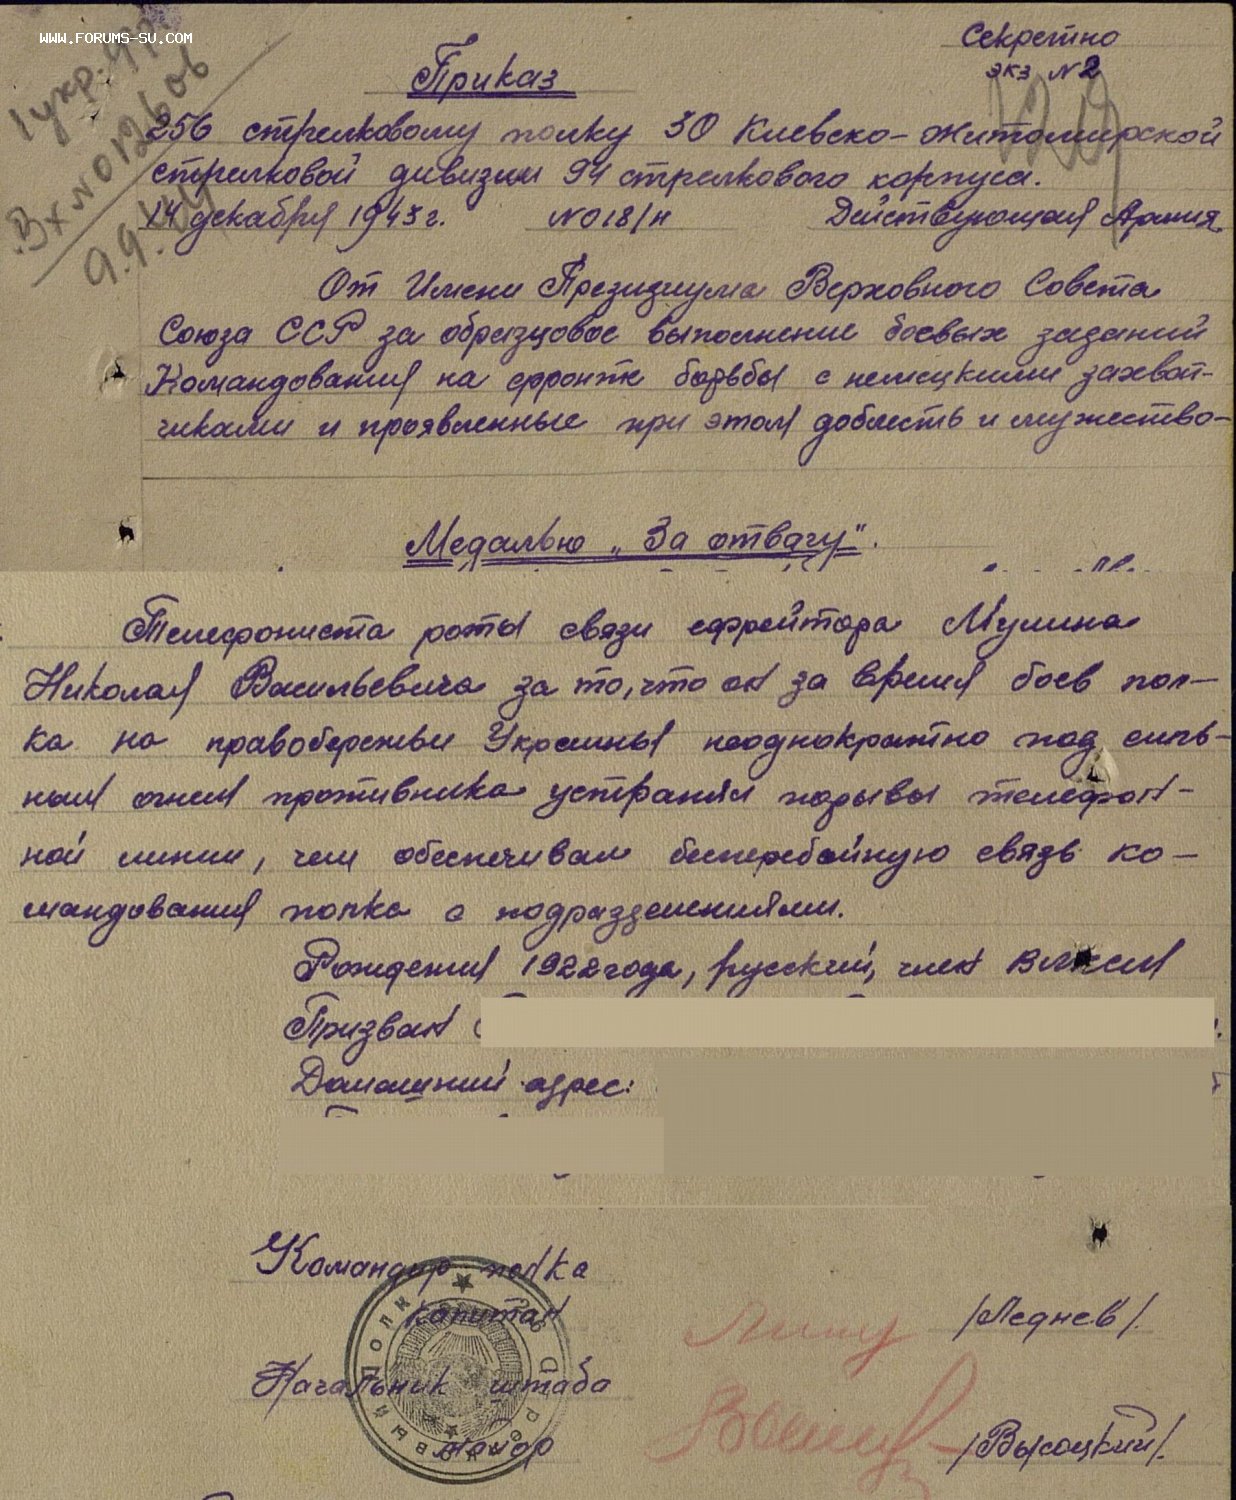 www.forums-su.com
Секретно
экз N 2
Приказ
1 укр.
Вх N 0126 об
9.9.44
256 стрелковому полку 30 Киевско-Житомирской
стрелковой дивизии 94 стрелкового корпуса.
14 декабря 1943 г. N 018/н Действующая Армия.
От Имени Президиума Верховного Совета
Союза ССР за образцовое выполнение боевых заданий
Командования на фронте борьбы с немецкими захват-
чиками и проявленные при этом доблесть и мужество-
Медалью „За отвагу".
Телефониста роты связи ефрейтора Мулина
Николая Васильевича за то, что он за время боев пол-
ка на правобережьи Украины неоднократно под силь-
ным огнем противника устранял порывы телефон-
ной линии, чем обеспечивал бесперебойную связь ко-
мандования полка с подразделениями.
Рождения 1922 года, русский, член ВЛКСМ
Призван
Домашний адрес:
Командир полка
капитан /Леднев/.
Начальник штаба
майор /Высоцкий/.